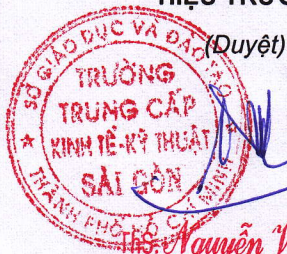 HIỆU TRƯỞ
(Duyệt)
SỞ GIÁO DỤC VÀ ĐÀO TẠO
TRƯỜNG
TRUNG CẤP
KINH TẾ-KỸ THUẬT
SÀI GÒN
THÀNH PHỐ HỒ CHÍ MINH
ThS. Nguyễn